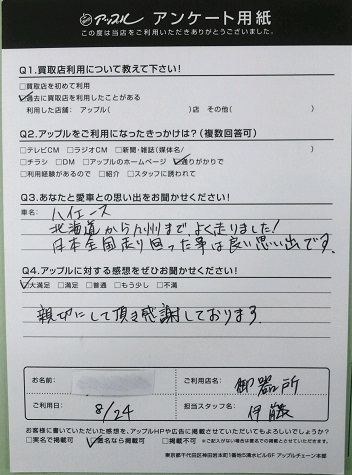 アップル アンケート用紙
この度は当店をご利用いただきありがとうございました。
Q1.買取店利用について教えて下さい!
□買取店を初めて利用
☑過去に買取店を利用したことがある
利用した店舗: アップル( )店 その他( )
Q2.アップルをご利用になったきっかけは?(複数回答可)
□テレビCM □ラジオCM □新聞・雑誌(媒体名/ )
□チラシ □DM □アップルのホームページ ☑通りがかりで
□利用経験があるので □紹介 □スタッフに誘われて
Q3.あなたと愛車との思い出をお聞かせください!
車名: ハイエース
北海道から九州まで、よく走りました!
日本全国走り回った事は良い思い出です。
Q4.アップルに対する感想をぜひお聞かせください!
☑大満足 □満足 □普通 □もう少し □不満
親切にして頂き感謝しております
お名前: ご利用店名: 御器所
ご利用日: 8/24 担当スタッフ名: 伊藤
お客様に書いていただいた感想を、アップルHPや広告に掲載させていただいてもよろしいでしょうか?
□実名で掲載可 ☑匿名なら掲載可 □掲載不可 ※ご記入がない場合は匿名での掲載とさせていただきます。
東京都千代田区神田岩本町1番地5清水ビル6F アップルチェーン本部